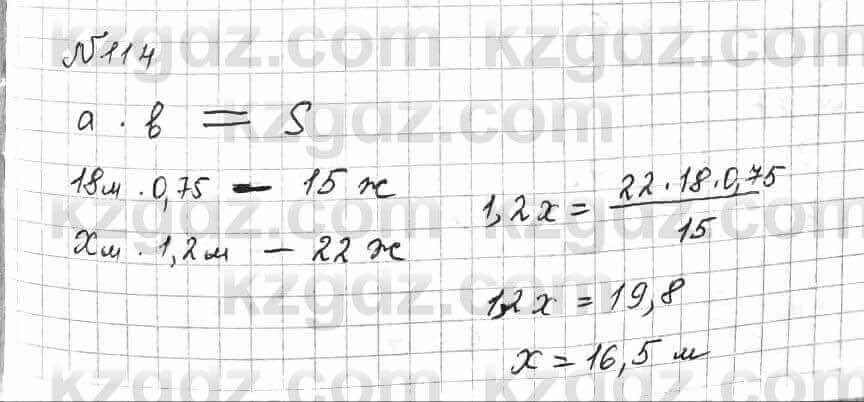 №114
a · b = S
18м · 0,75 – 15 ж
xм · 1,2м – 22 ж
1,2x = 22·18·0,75 / 15
1,2x = 19,8
x = 16,5 м
kzgdz.com kzgdz.com
kzgdz.com
kzgdz.com kzgdz.com
kzgdz.com
kzgdz.com kzgdz.com